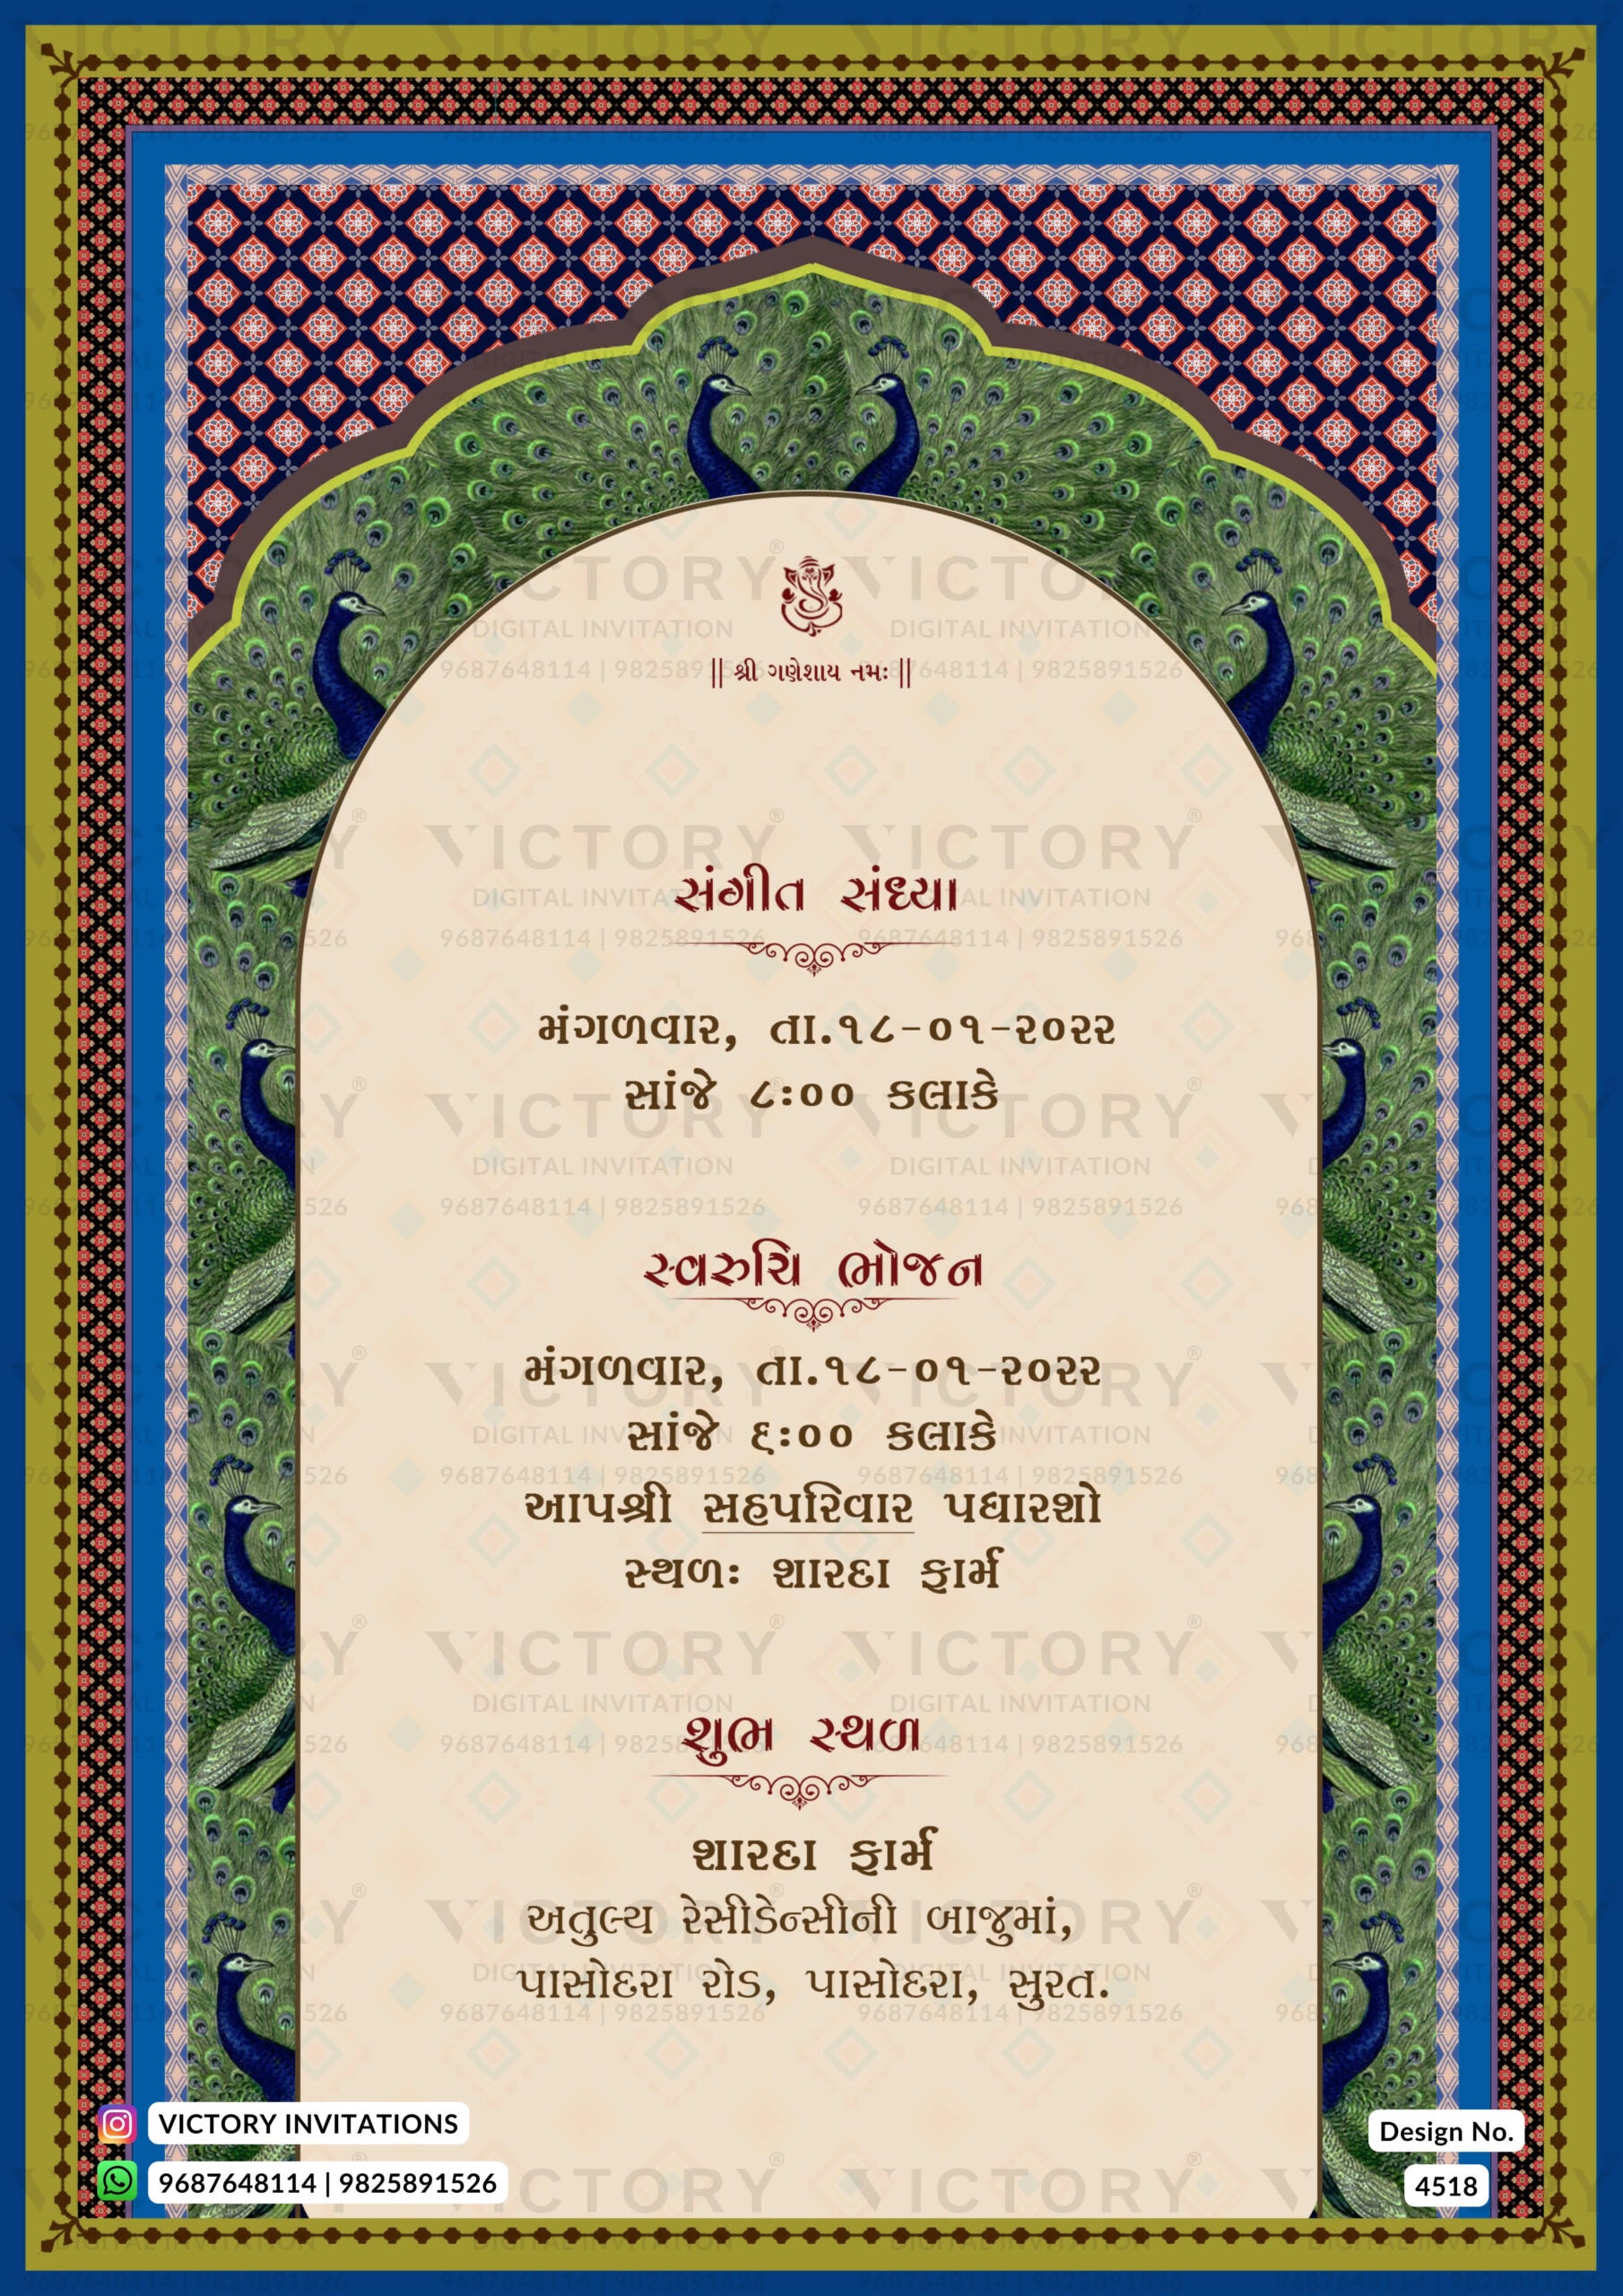 || શ્રી ગણેશાય નમઃ ||
સંગીત સંધ્યા
મંગળવાર, તા.૧૮-૦૧-૨૦૨૨
સાંજે ૮:૦૦ કલાકે
સ્વરુચિ ભોજન
મંગળવાર, તા.૧૮-૦૧-૨૦૨૨
સાંજે ૬:૦૦ કલાકે
આપશ્રી સહપરિવાર પધારશો
સ્થળઃ શારદા ફાર્મ
શુભ સ્થળ
શારદા ફાર્મ
અતુલ્ય રેસીડેન્સીની બાજુમાં,
પાસોદરા રોડ, પાસોદરા, સુરત.
VICTORY INVITATIONS
9687648114 | 9825891526
Design No.
4518
VICTORY®
DIGITAL INVITATION
9687648114 | 9825891526